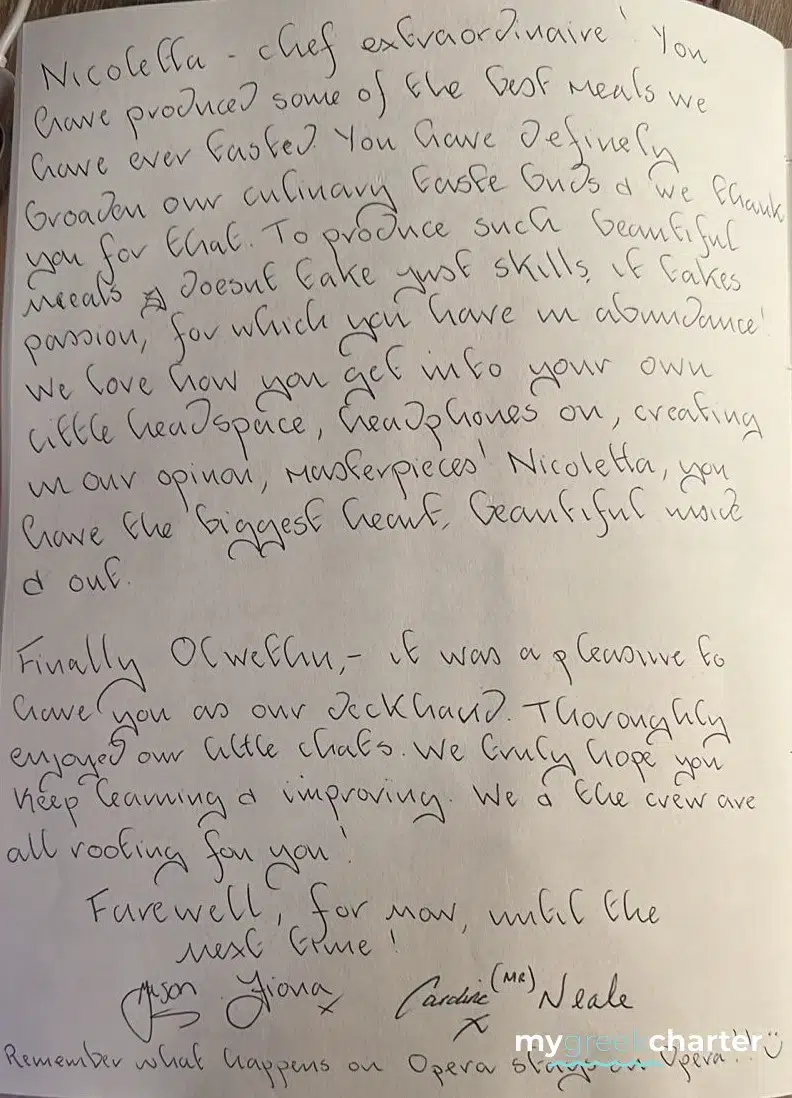 Nicoletta - chef extraordinaire! You
have produced some of the best meals we
have ever tasted. You have definely
broaden our culinary taste buds & we thank
you for that. To produce such beautiful
meals doesnt take just skills, it takes
passion, for which you have in abundance!
We love how you get into your own
little headspace, headphones on, creating
in our opinon, masterpieces! Nicoletta, you
have the biggest heart, beautiful inside
& out.
Finally Olwethu,- it was a pleasure to
have you as our deckhand. Thoroughly
enjoyed our little chats. We truly hope you
keep learning & improving. We & the crew are
all rooting for you!
Farewell, for now, until the
next time!
Jason Fiona x Caroline x (MR) Neale
mygreekcharter
Remember what happens on Opera stays on Opera!!